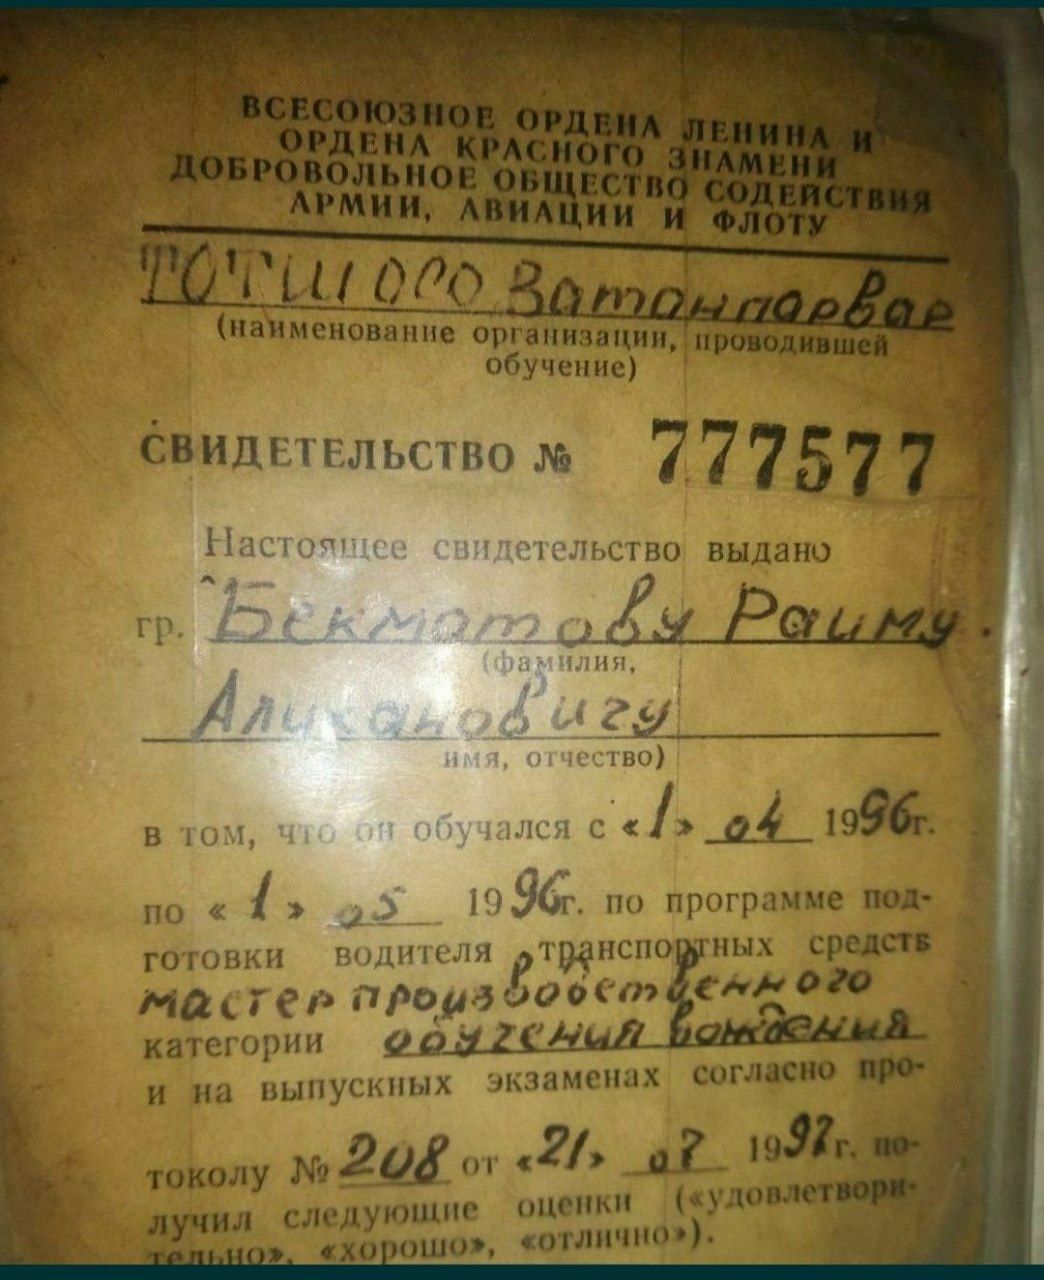 ВСЕСОЮЗНОЕ ОРДЕНА ЛЕНИНА И
ОРДЕНА КРАСНОГО ЗНАМЕНИ
ДОБРОВОЛЬНОЕ ОБЩЕСТВО СОДЕЙСТВИЯ
АРМИИ, АВИАЦИИ И ФЛОТУ
(наименование организации, проводившей
обучение)
СВИДЕТЕЛЬСТВО № 777577
Настоящее свидетельство выдано
гр. Бекматову Раиму
(фамилия,
Алихановичу
имя, отчество)
в том, что он обучался с «1» 04 1996г.
по «1» 05 1996г. по программе под-
готовки водителя транспортных средств
мастер производственного
категории обучения вождения
и на выпускных экзаменах согласно про-
токолу № 208 от «21» 07 1997г. по-
лучил следующие оценки («удовлетвори-
тельно», «хорошо», «отлично»).